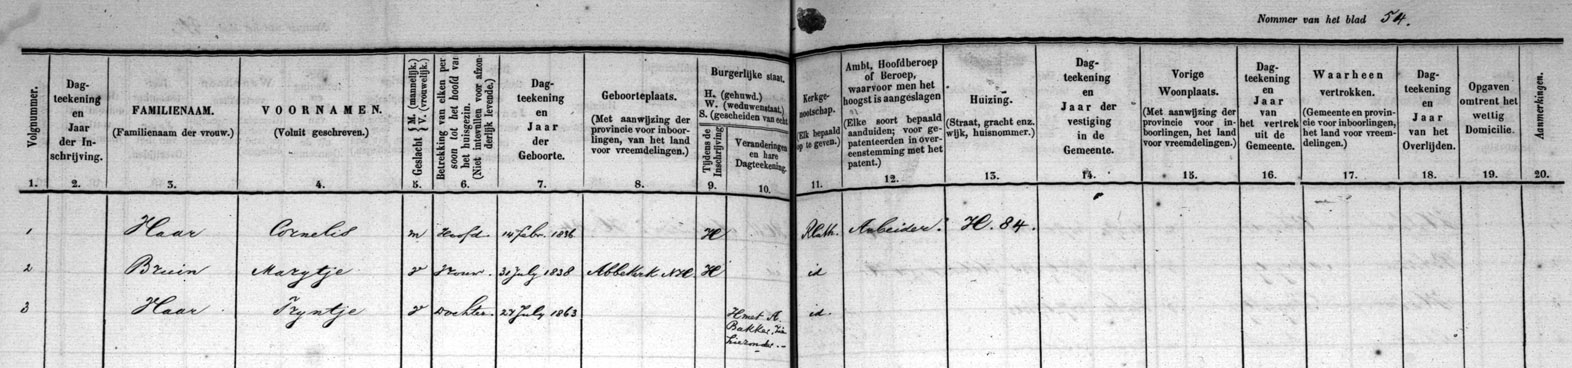 Nommer van het blad 54.
Volgnummer.
Dag-
teekening
en
Jaar
der In-
schrijving.
FAMILIENAAM.
(Familienaam der vrouw.)
VOORNAMEN.
(Voluit geschreven.)
Geslacht { M. (mannelijk.) V. (vrouwelijk.)
Betrekking van elken per
soon tot het hoofd van
het huisgezin.
(Niet intevullen voor afzon-
derlijk levende.)
Dag-
teekening
en
Jaar
der
Geboorte.
Geboorteplaats.
(Met aanwijzing der
provincie voor inboor-
lingen, van het land
voor vreemdelingen.)
Burgerlijke staat.
H. (gehuwd.)
W. (weduwenstaat.)
S. (gescheiden van echt
Tijdens de
Inschrijving
Veranderingen
en hare
Dagteekening.
Kerkge-
nootschap.
(Elk bepaald
op te geven.)
Ambt, Hoofdberoep
of Beroep,
waarvoor men het
hoogst is aangeslagen
(Elke soort bepaald
aanduiden; voor ge-
patenteerden in over-
eenstemming met het
patent.)
Huizing.
(Straat, gracht enz.
wijk, huisnommer.)
Dag-
teekening
en
Jaar der
vestiging
in de
Gemeente.
Vorige
Woonplaats.
(Met aanwijzing der
provincie voor in-
boorlingen, het land
voor vreemdelingen.)
Dag-
teekening
en
Jaar
van het
vertrek
uit de
Gemeente.
Waarheen
vertrokken.
(Gemeente en provin-
cie voor inboorlingen,
het land voor vreem-
delingen.)
Dag-
teekening
en
Jaar
van het
Overlijden.
Opgaven
omtrent het
wettig
Domicilie.
Aanmerkingen.
1. 2. 3. 4. 5. 6. 7. 8. 9. 10. 11. 12. 13. 14. 15. 16. 17. 18. 19. 20.
1 Haar Cornelis m Hoofd. 14 Febr. 1836 H R.Kath. Arbeider. H. 84.
2 Bruin Marytje v Vrouw. 31 July 1838 Abbekerk NH H id
3 Haar Tryntje v Dochter. 27 July 1863 id.
H met A.
Bakker, zie
hieronder.